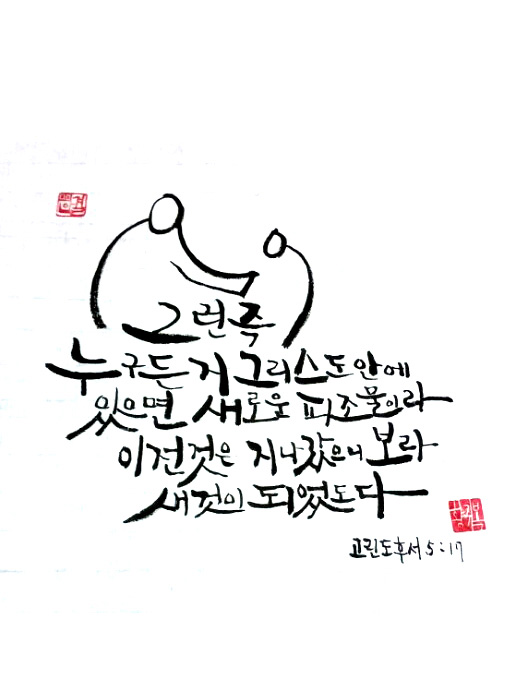 그런즉
누구든지 그리스도안에
있으면 새로운 피조물이라
이전것은 지나갔으니 보라
새것이 되었도다
고린도후서 5:17